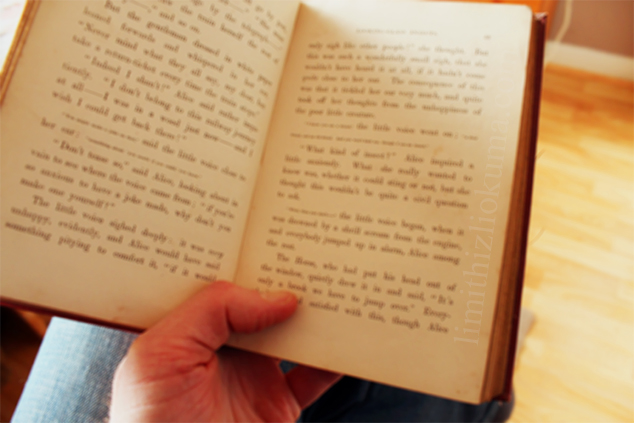 But the gentleman dressed in white paper
leaned forwards and whispered in her ear,
"Never mind what they all say, my dear, but
take a return-ticket every time the train stops."
"Indeed I shan't!" Alice said rather impa-
tiently. "I don't belong to this railway journey
at all—I was in a wood just now—and I
wish I could get back there!"
said the little voice close to
her ear;
"Don't tease so," said Alice, looking about in
vain to see where the voice came from; "if you're
so anxious to have a joke made, why don't you
make one yourself?"
The little voice sighed deeply: it was very
unhappy, evidently, and Alice would have said
something pitying to comfort it, "if it would
only sigh like other people!" she thought. But
this was such a wonderfully small sigh, that she
wouldn't have heard it at all, if it hadn't come
quite close to her ear. The consequence of this
was that it tickled her ear very much, and quite
took off her thoughts from the unhappiness of
the poor little creature.
the little voice went on;
"What kind of insect?" Alice inquired a
little anxiously. What she really wanted to
know was, whether it could sting or not, but she
thought this wouldn't be quite a civil question
to ask.
the little voice began, when it
was drowned by a shrill scream from the engine,
and everybody jumped up in alarm, Alice among
the rest.
The Horse, who had put his head out of
the window, quietly drew it in and said, "It's
only a brook we have to jump over." Every-
satisfied with this, though Alice